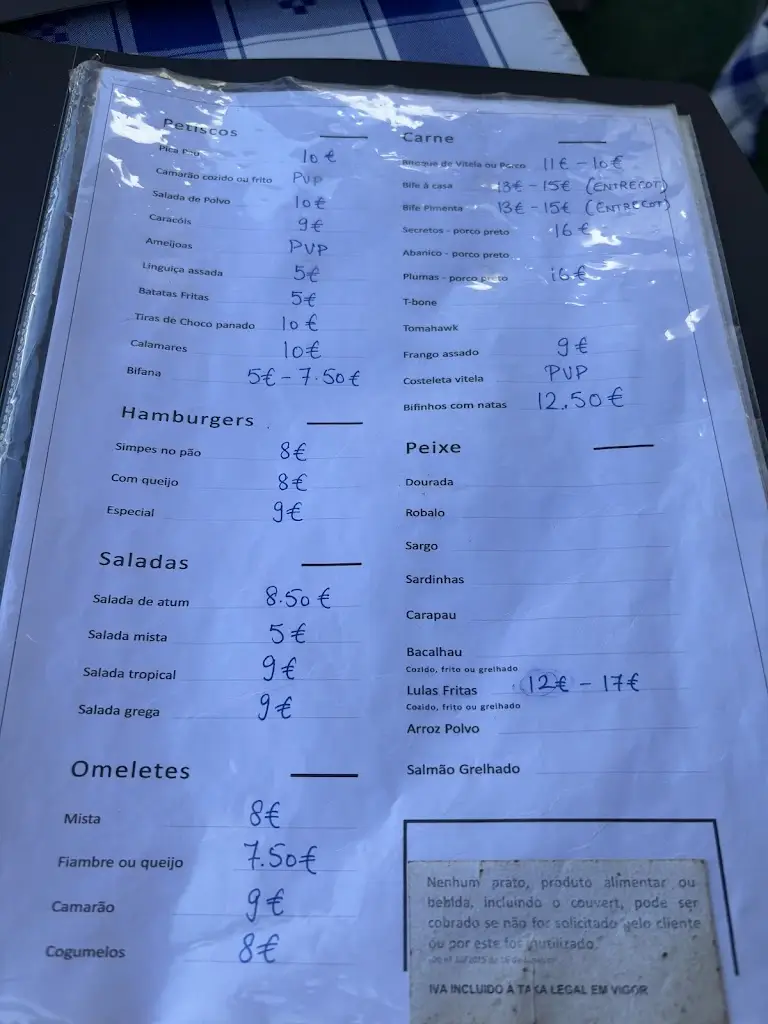 Petiscos
Pica Pau 10€
Camarão cozido ou frito PVP
Salada de Polvo 10€
Caracóis 9€
Ameijoas PVP
Linguiça assada 5€
Batatas Fritas 5€
Tiras de Choco panado 10€
Calamares 10€
Bifana 5€ - 7.50€
Hamburgers
Simpes no pão 8€
Com queijo 8€
Especial 9€
Saladas
Salada de atum 8.50€
Salada mista 5€
Salada tropical 9€
Salada grega 9€
Omeletes
Mista 8€
Fiambre ou queijo 7.50€
Camarão 9€
Cogumelos 8€
Carne
de Vitela ou Porco 11€ - 10€
Bife à casa 13€ - 15€ (ENTRECOT)
Bife Pimenta 13€ - 15€ (ENTRECOT)
Secretos - porco preto 16€
Abanico - porco preto
Plumas - porco preto 16€
T-bone
Tomahawk
Frango assado 9€
Costeleta vitela PVP
Bifinhos com natas 12.50€
Peixe
Dourada
Robalo
Sargo
Sardinhas
Carapau
Bacalhau
Cozido, frito ou grelhado
Lulas Fritas 12€ - 17€
Cozido, frito ou grelhado
Arroz Polvo
Salmão Grelhado
Nenhum prato, produto alimentar ou
bebida, incluindo o couvert, pode ser
cobrado se não for solicitado pelo cliente
ou por este for inutilizado."
IVA INCLUIDO À TAXA LEGAL EM VIGOR